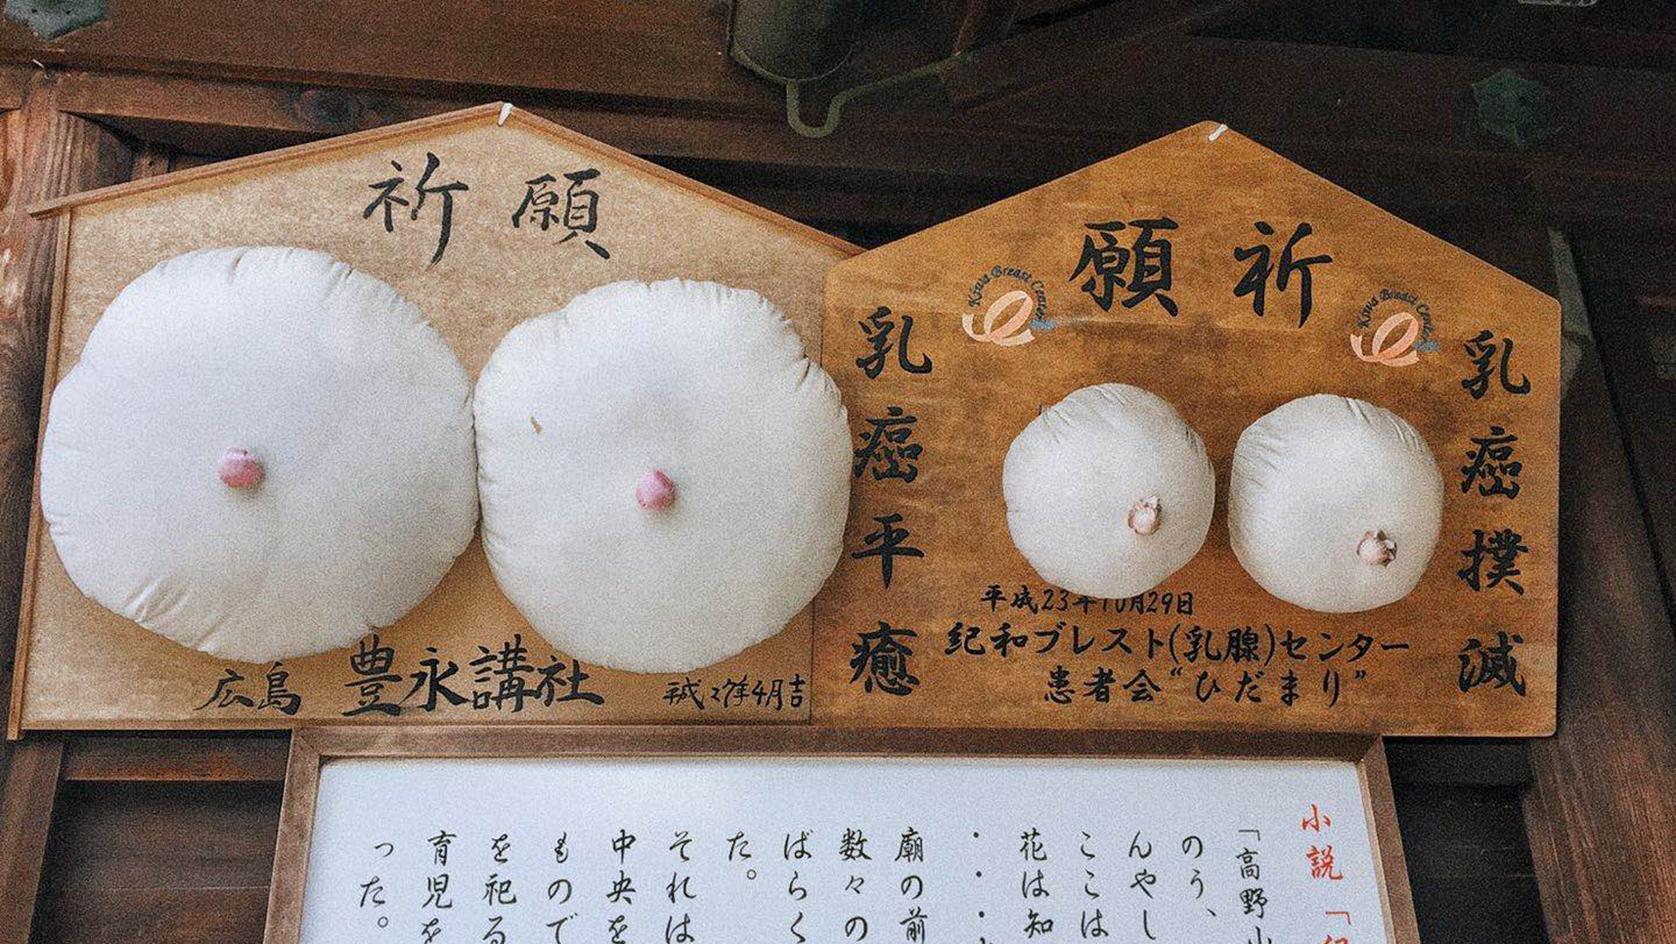 祈願
広島 豊永講社
平成27年4月吉
祈願
Kiwa Breast Center
Kiwa Breast Center
乳癌撲滅
乳癌平癒
平成23年10月29日
紀和ブレスト(乳腺)センター
患者会“ひだまり”
小説「紀
「高野山
のう、
んやし
ここは
花は知
・・・・
廟の前
数々の
ばらく
た。
それは
中央を
もので
を祀る
育児を
った。